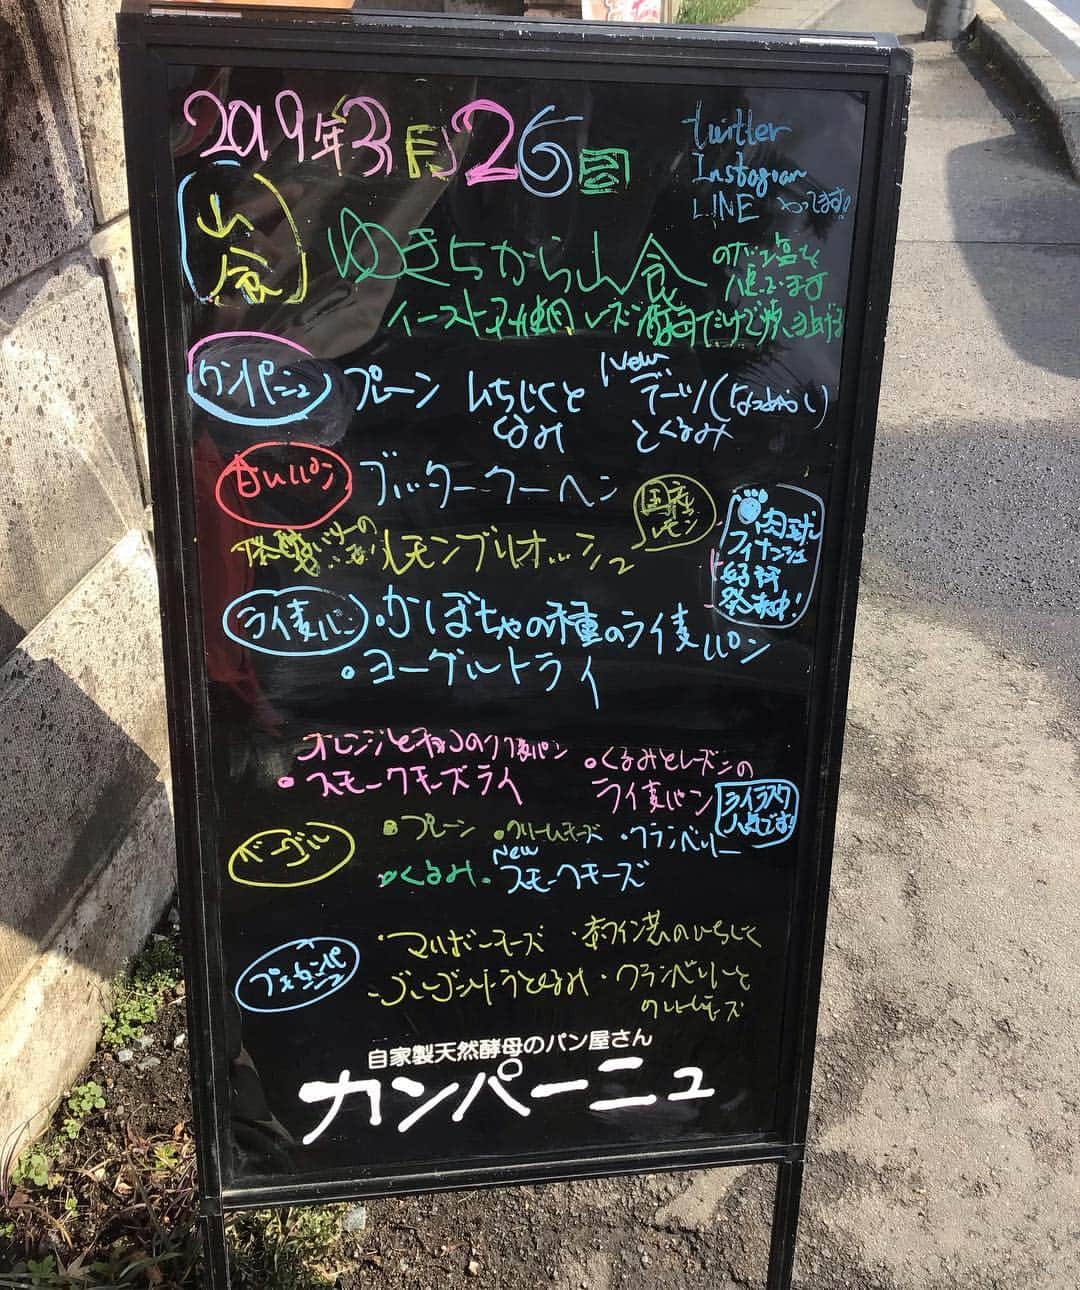 2019年3月26日
twitter
Instagram
LINE やってます!
山食
ゆきちから山食
イースト不使用 レーズン酵母だけで焼き上げる
カンパーニュ プレーン いちじくと くるみ
New デーツ(なつめやし) とくるみ
甘いパン ブッタークーヘン
レモンブリオッシュ
国産 レモン
肉球 フィナンシェ 好評 発売中!
ライ麦パン ・かぼちゃの種のライ麦パン
・ヨーグルトライ
オレンジとチョコのライ麦パン
・くるみとレーズンの ライ麦パン
・スモークチーズライ
ライラスク 人気です!
ベーグル ・プレーン ・クリームチーズ ・クランベリー
・くるみ・ New スモークチーズ
プチカンパーニュ ・赤ワイン煮のいちじく
・クランベリーと クリームチーズ
自家製天然酵母のパン屋さん
カンパーニュ